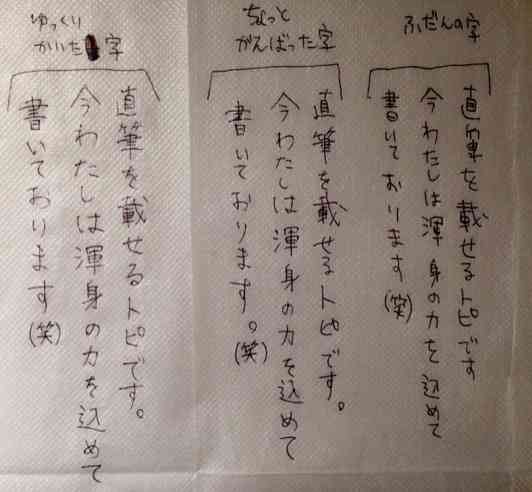 ふだんの字
直筆を載せるトピです
今わたしは渾身の力を込めて
書いております(笑)
ちょっと
がんばった字
直筆を載せるトピです。
今わたしは渾身の力を込めて
書いております。(笑)
ゆっくり
かいた字
直筆を載せるトピです。
今わたしは渾身の力を込めて
書いております(笑)